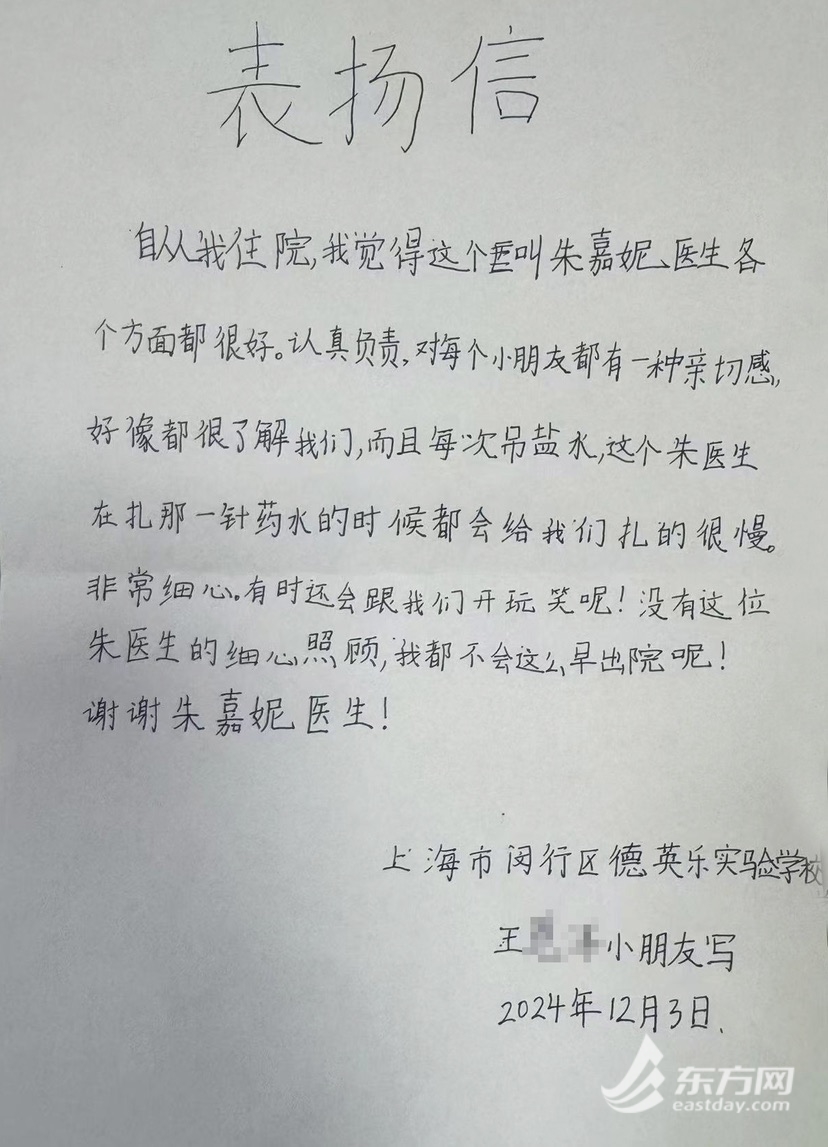 表扬信
自从我住院,我觉得这个叫朱嘉妮医生各
个方面都很好。认真负责,对每个小朋友都有一种亲切感,
好像都很了解我们,而且每次吊盐水,这个朱医生
在扎那一针药水的时候都会给我们扎的很慢。
非常细心。有时还会跟我们开玩笑呢!没有这位
朱医生的细心照顾,我都不会这么早出院呢!
谢谢朱嘉妮医生!
上海市闵行区德英乐实验学校
王小朋友写
2024年12月3日.
东方网
eastday.com